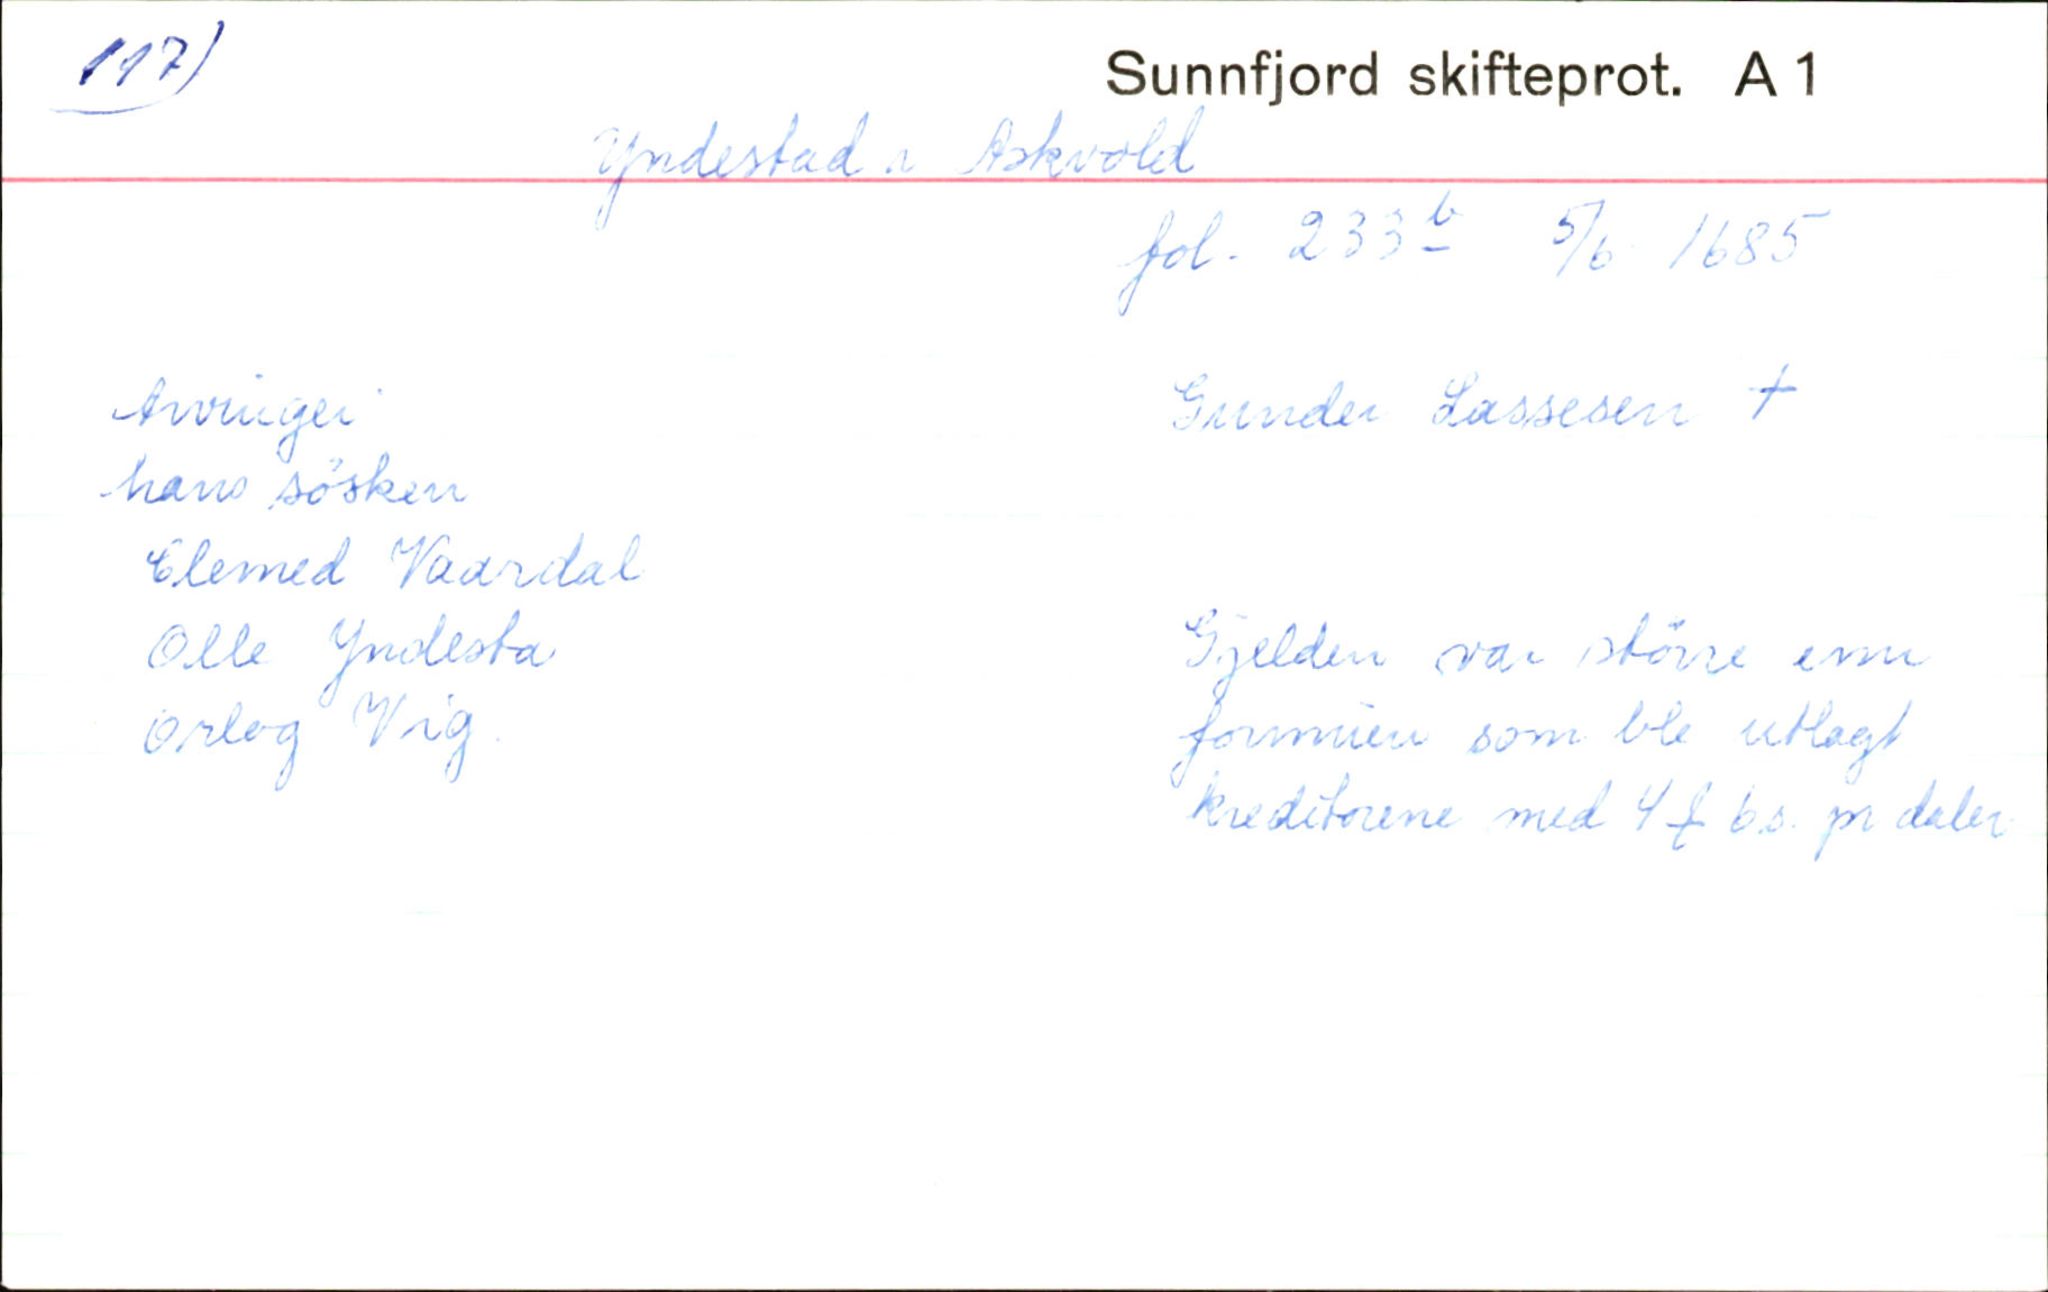 117)
Sunnfjord skifteprot. A 1
Yndestad i Askvold
fol. 233 b 5/6 1685
Arvinger
Gunder Lassesen +
hans sösken
Elemed Vaardal
Olle Yndesta
Gjelden var större enn
Orlog Vig.
formuen som ble utlagt
kreditorene med 4 ƒ 6 s. pr daler